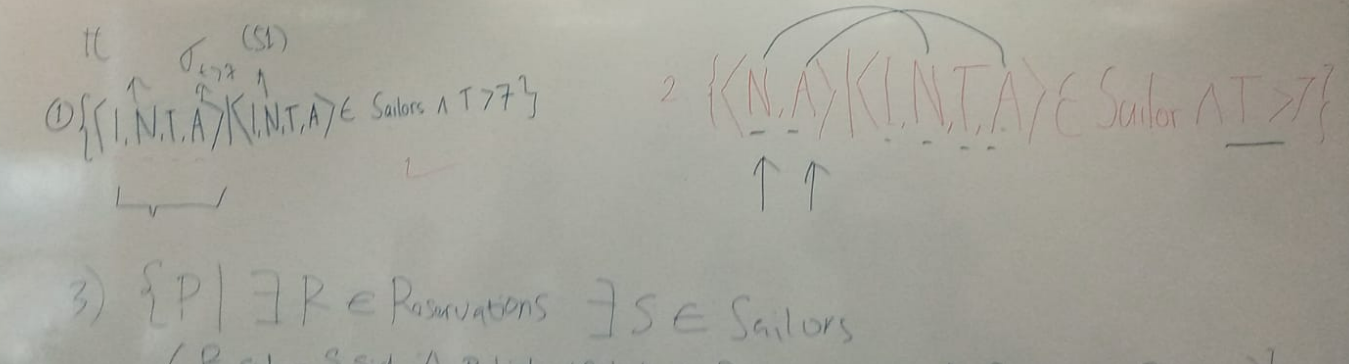 π
σ T>7 (S1)
① {⟨I,N,T,A⟩|⟨I,N,T,A⟩∈ Sailors ∧ T>7}
2 {⟨N,A⟩|⟨I,N,T,A⟩∈ Sailor ∧ T>7}
3) {P| ∃R ∈ Reservations ∃S ∈ Sailors